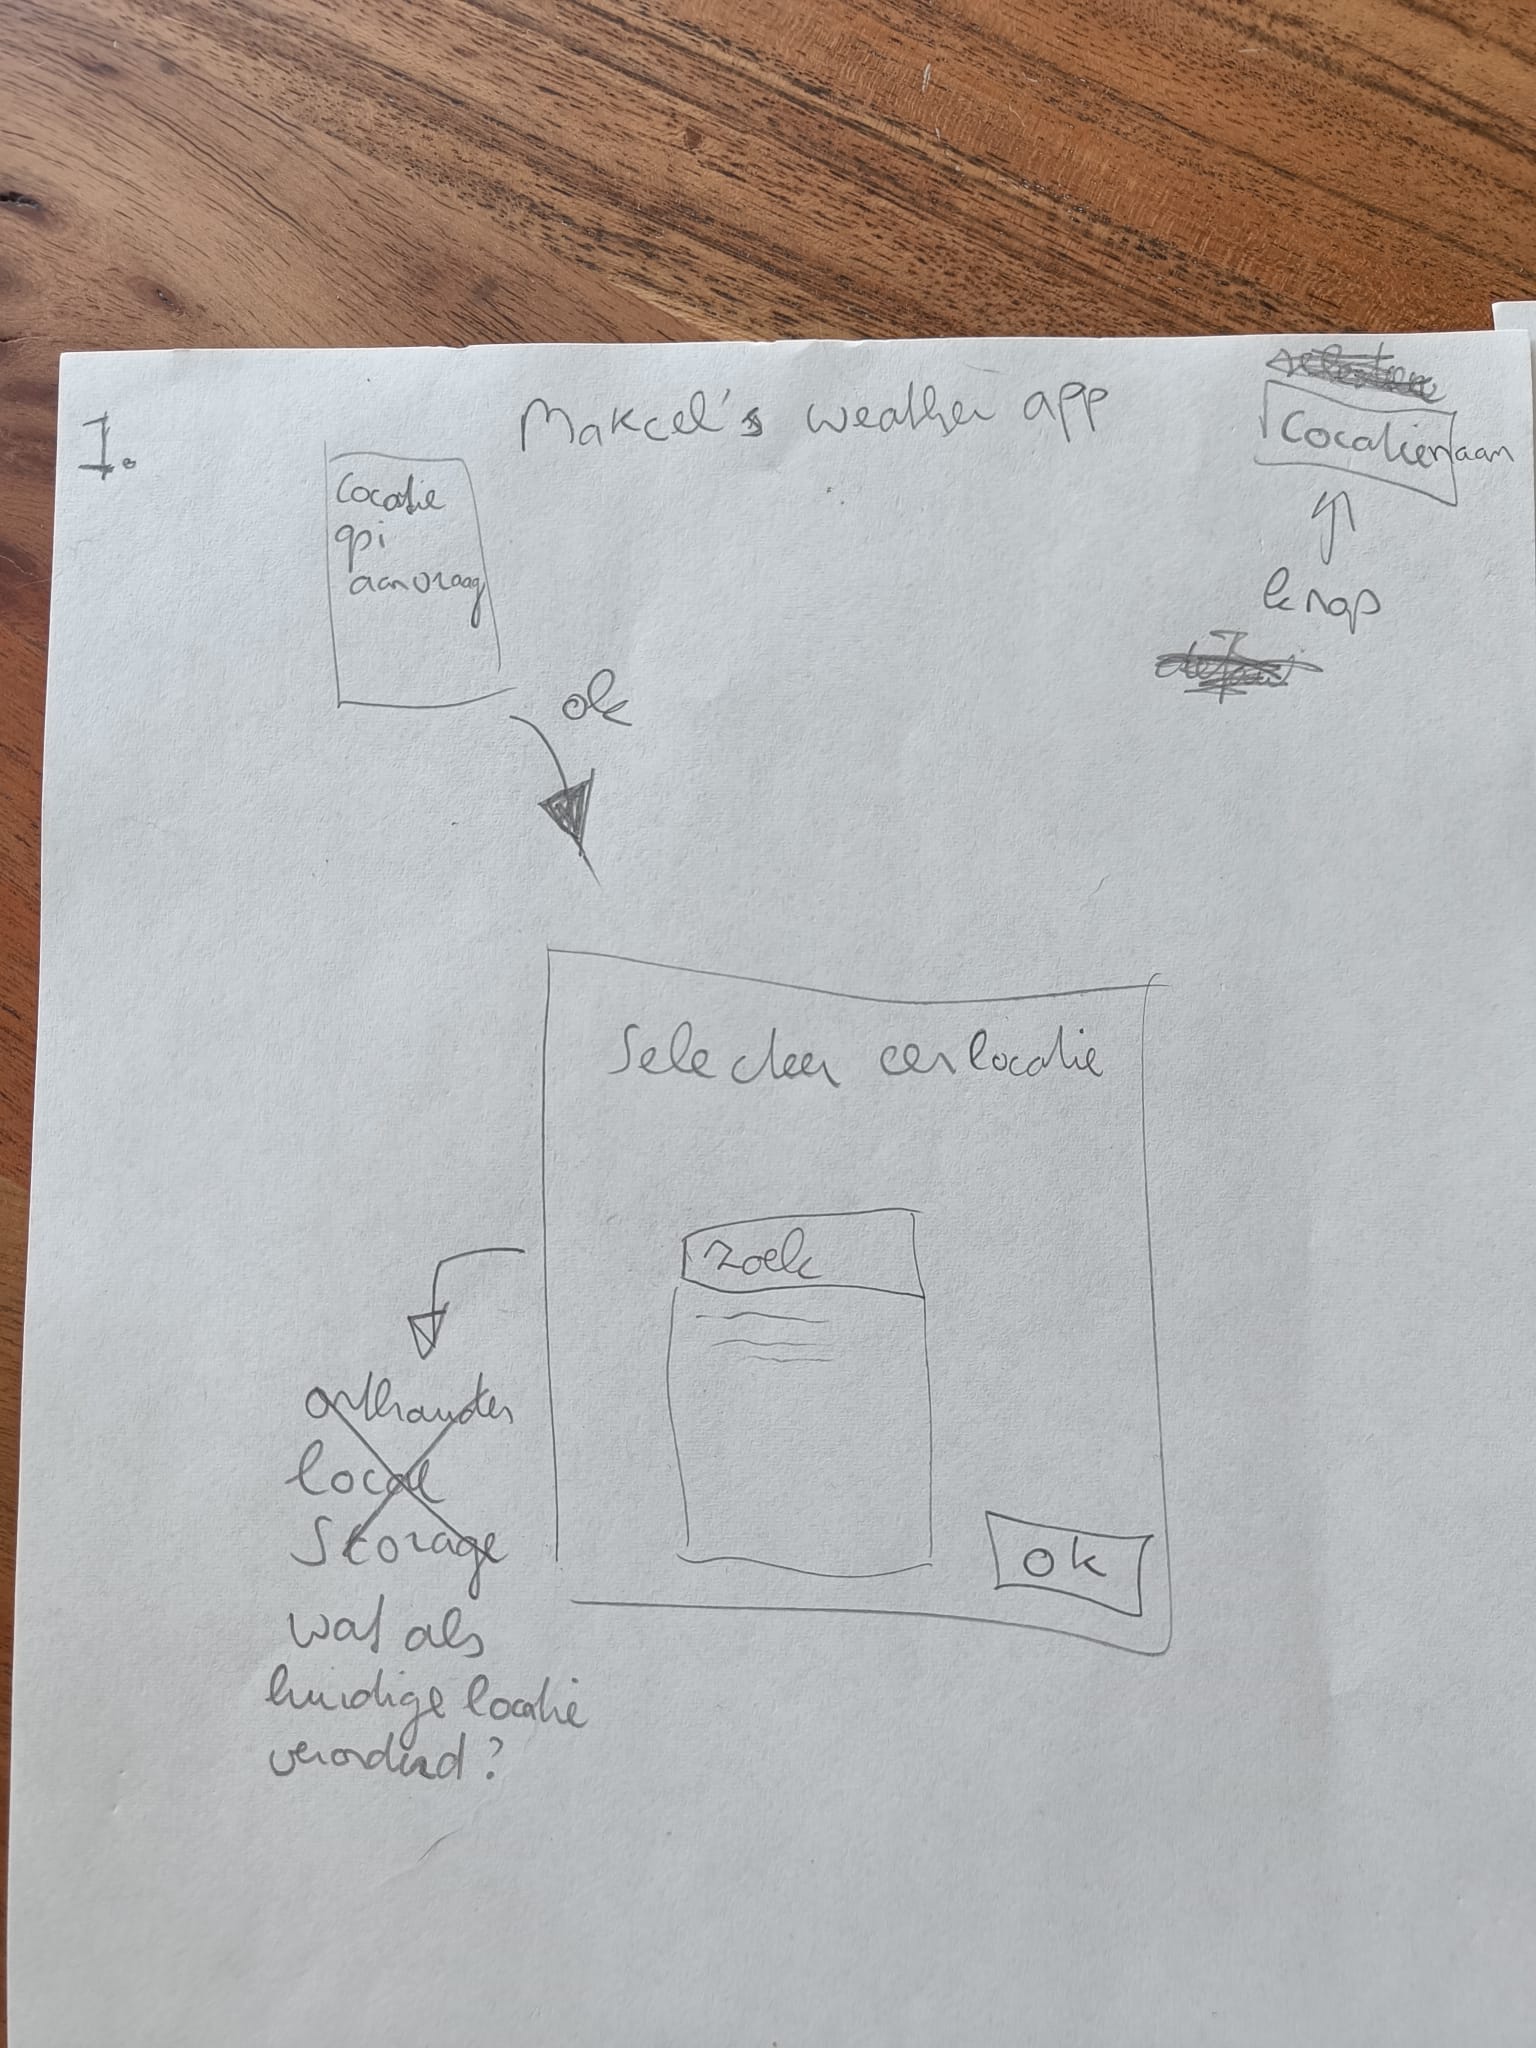 1.
Makcel's weather app
Locatienaam
knop
Locatie
api
aanvraag
ok
Selecteer een locatie
zoek
ok
onthouden
local
storage
wat als
huidige locatie
veranderd?